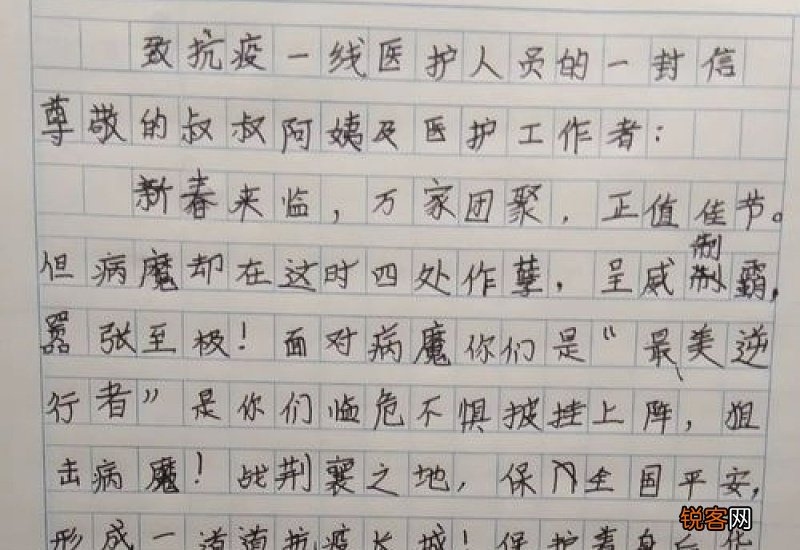 致抗疫一线医护人员的一封信
尊敬的叔叔阿姨及医护工作者：
新春来临，万家团聚，正值佳节。
但病魔却在这时四处作孽，呈威制霸，
嚣张至极！面对病魔你们是“最美逆
行者”是你们临危不惧披挂上阵，狙
击病魔！战荆襄之地，保全国平安，
形成一道道抗疫长城！保护着身后华
锐客网